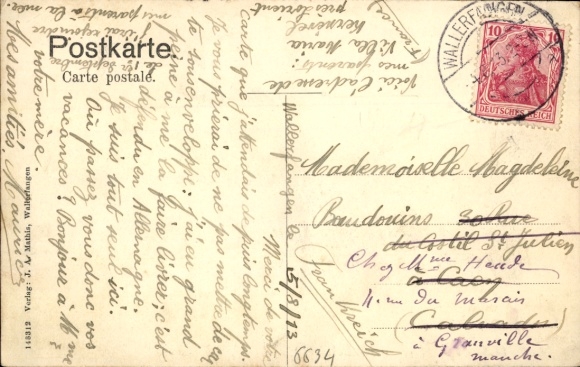 Postkarte.
Carte postale.
WALLERFANGEN
10 10
DEUTSCHES REICH
Wallerfangen le 15/8/13
Merci de votre
carte que j'attendais depuis longtemps.
Je vous prierai de ne pas mettre de
j'ai eu grand
peine à me la faire livrer; c'est
défendu en Allemagne.
Je suis tout seul ici.
Où passez vous donc vos
vacances? Bonjour à Mme
votre mère.
Mes amitiés
Voici l'adresse de
mes parents:
Villa Maria
Kernével
(France)
mes parents à la mer.
Mademoiselle Magdeleine
Baudouins 30 Rue
du Costil St Julien
à Caen
(Calvados)
Chez Mme Heude
4. rue du Marais
à Granville
manche.
6634
148312 Verlag: J. A. Mathis, Wallerfangen